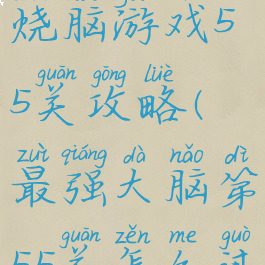 烧脑游戏5
guān gōng lüè
5关攻略(
zuì qiáng dà nǎo dì
最强大脑第
guān zěn me guò
55关怎么过